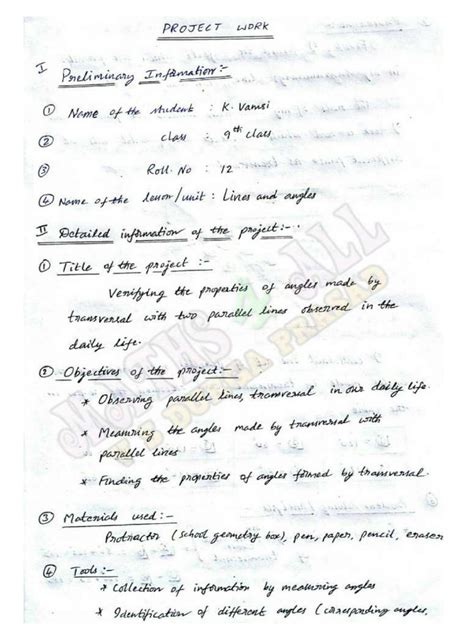 PROJECT WORK
I Preliminary Information:-
① Name of the student : K. Vamsi
② class : 9th class
③ Roll. No : 12
④ Name of the lesson/unit : Lines and angles
II Detailed information of the project:-
① Title of the project :-
Verifying the properties of angles made by
transversal with two parallel lines observed in the
daily life.
② Objectives of the project:-
* Observing parallel lines, transversal in our daily life.
* Measuring the angles made by transversal with
parallel lines
* Finding the properties of angles formed by transversal.
③ Materials used:-
Protractor (school geometry box), pen, paper, pencil, eraser
④ Tools:-
* Collection of information by measuring angles
* Identification of different angles (corresponding angles,
MATHS 4 ALL
DURGA PRASAD